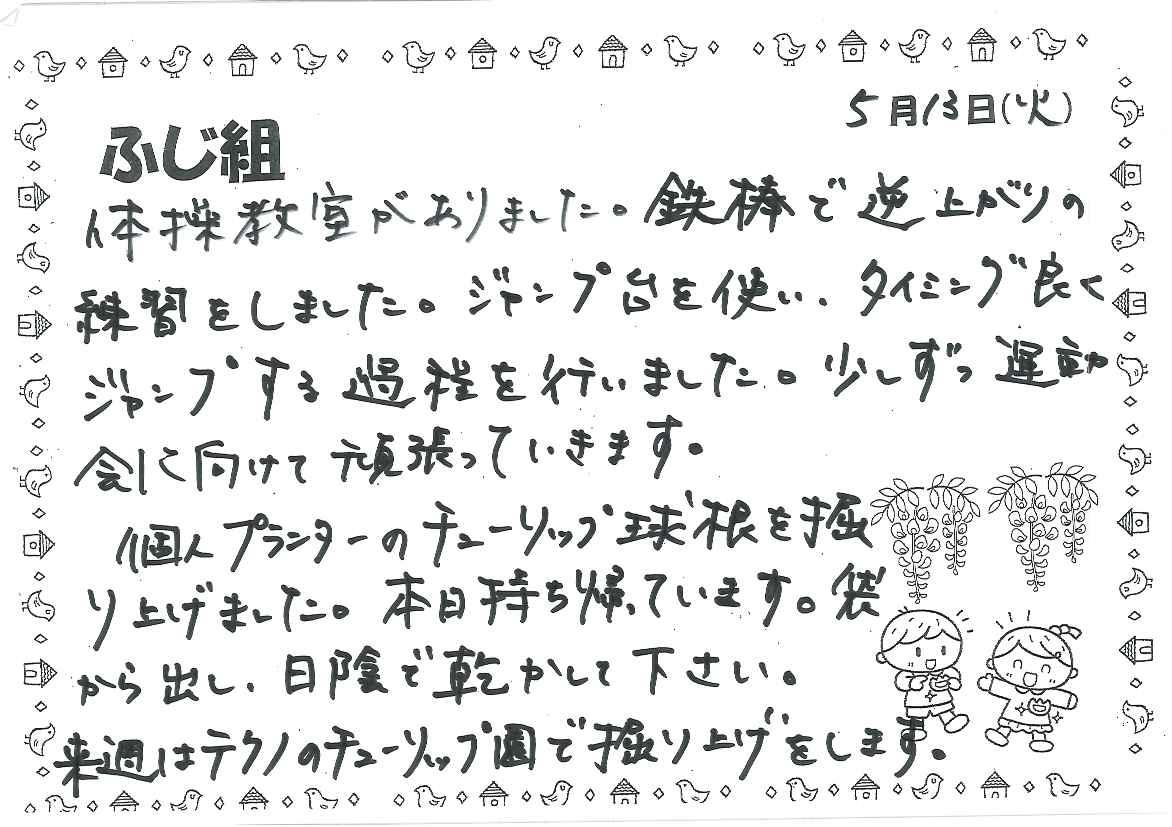 5月13日(火)
ふじ組
体操教室がありました。鉄棒で逆上がりの
練習をしました。ジャンプ台を使い、タイミング良く
ジャンプする過程を行いました。少しずつ運動
会に向けて頑張っていきます。
個人プランターのチューリップ球根を掘
り上げました。本日持ち帰っています。袋
から出し、日陰で乾かして下さい。
来週はテクノのチューリップ園で掘り上げをします。